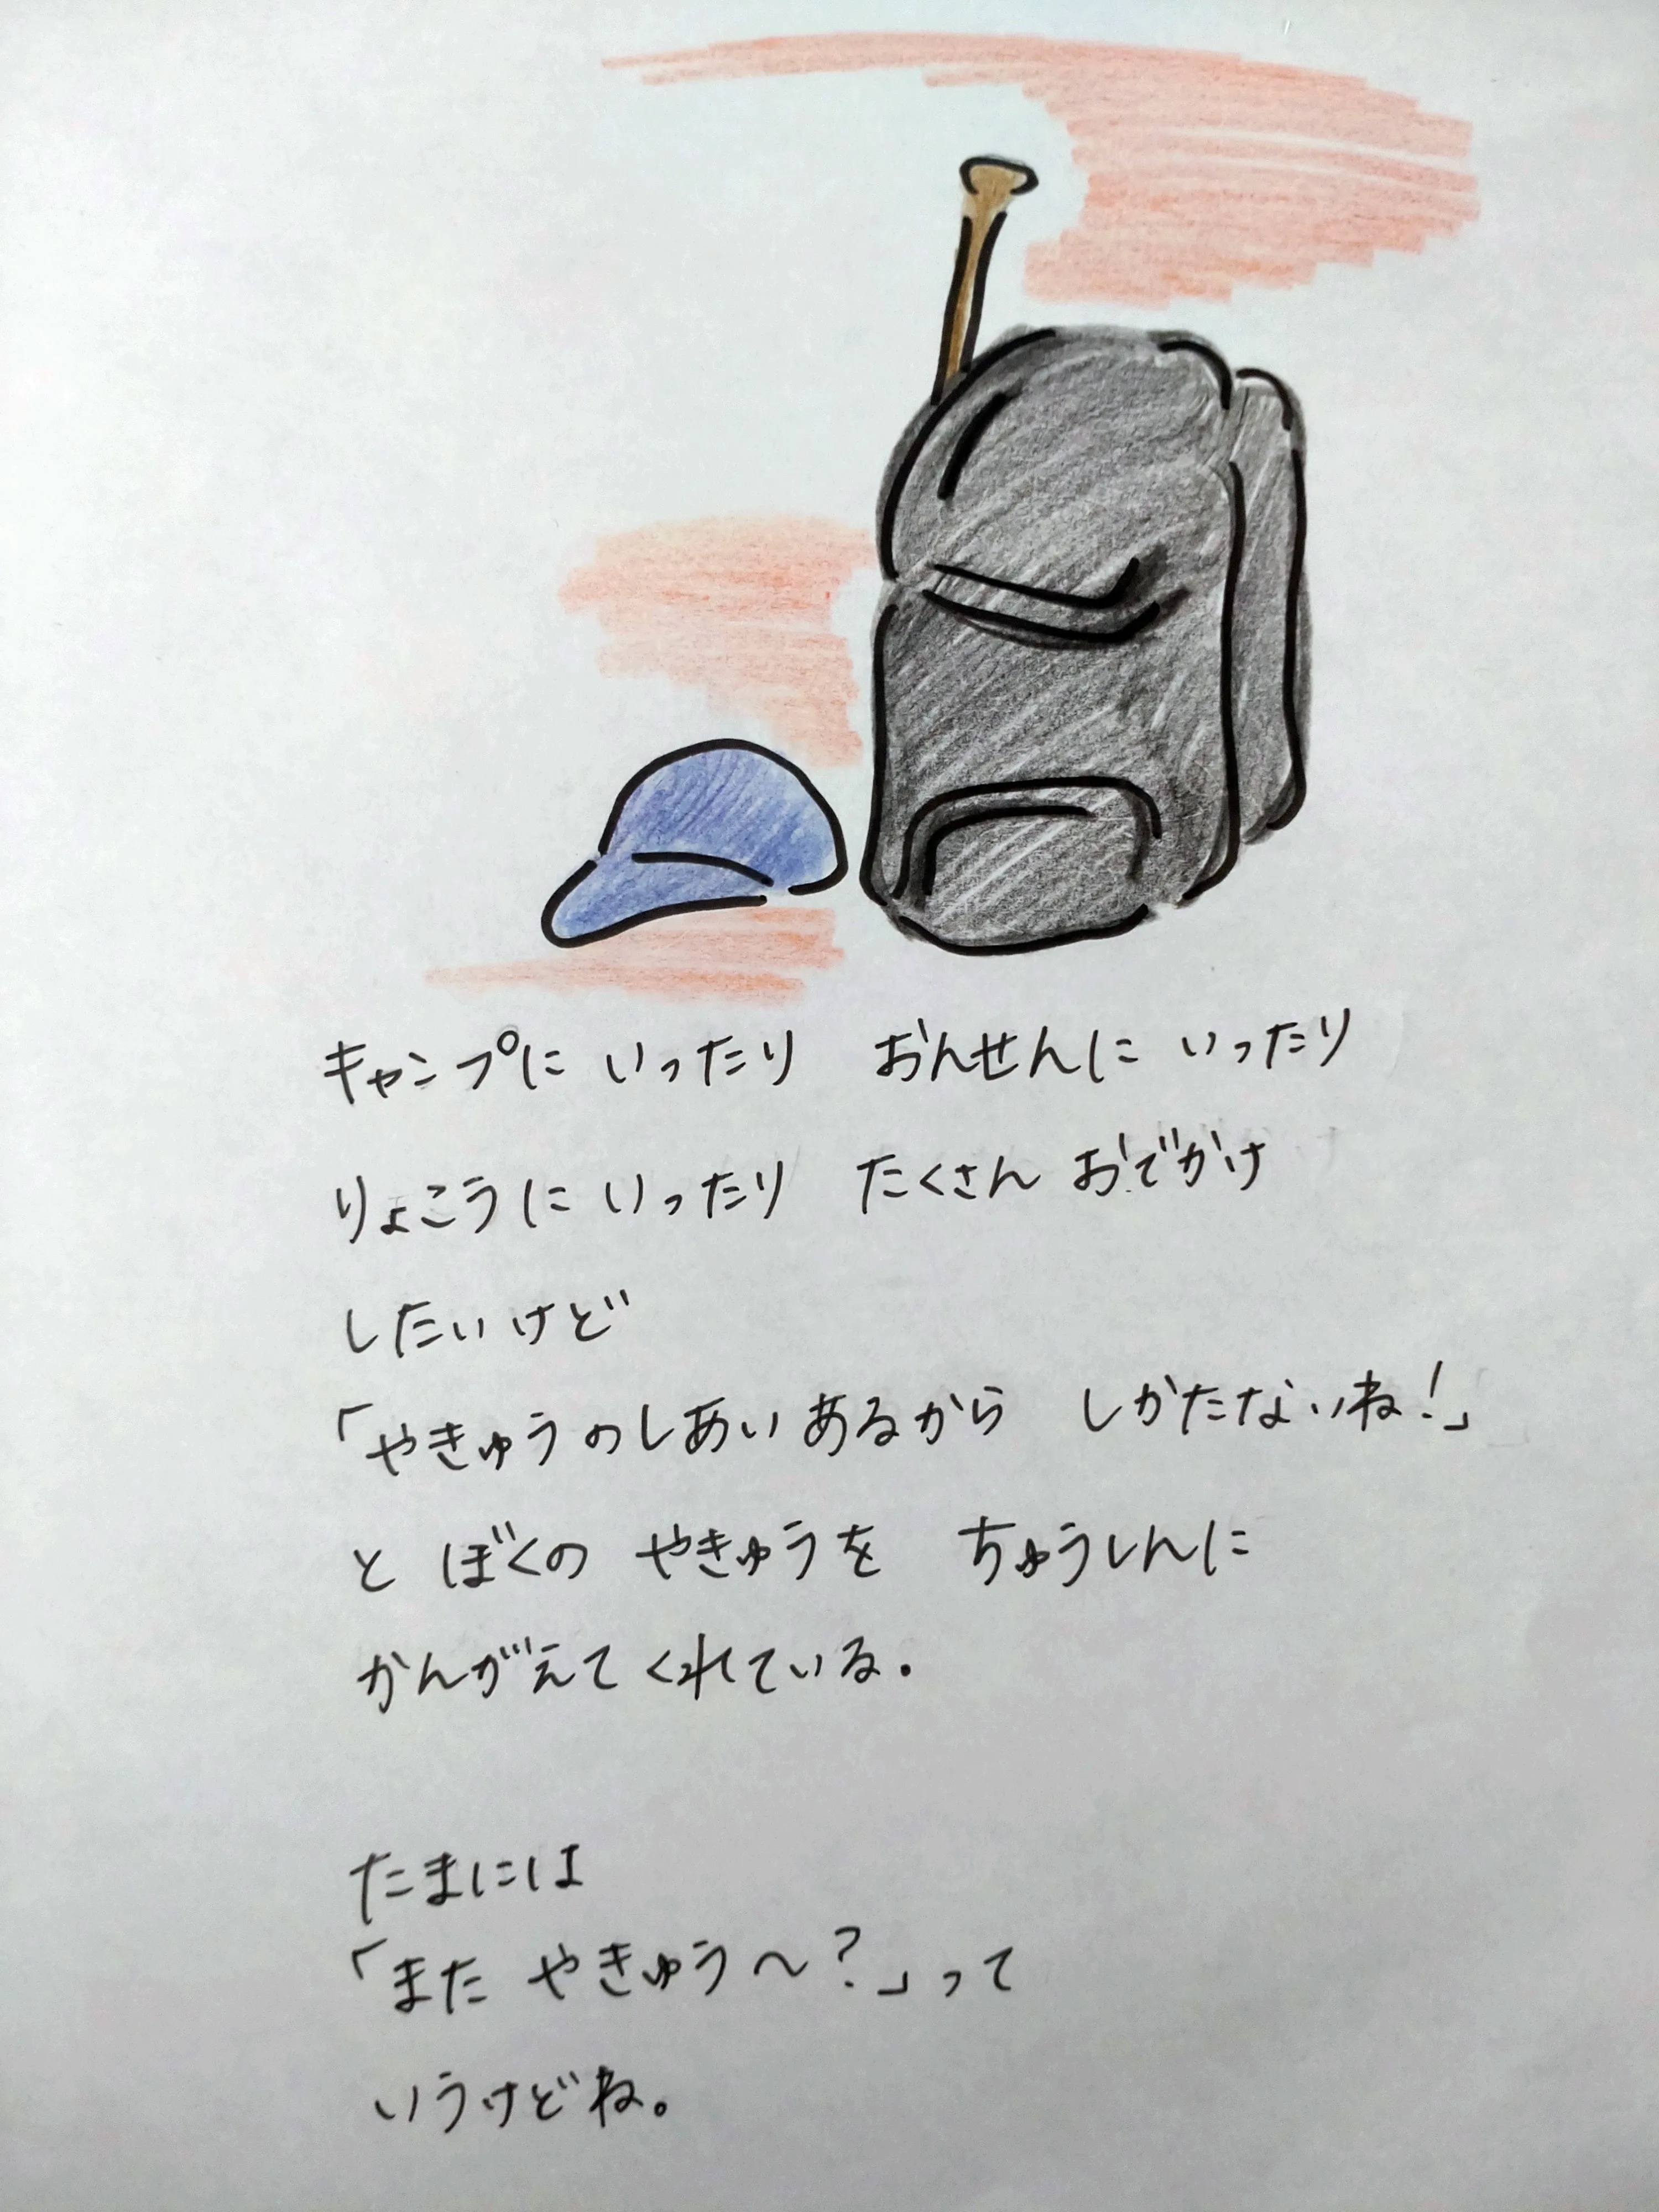 キャンプに いったり おんせんに いったり
りょこうに いったり たくさん おでかけ
したいけど
「やきゅうのしあい あるから しかたないね!」
と ぼくの やきゅうを ちゅうしんに
かんがえて くれている.
たまには
「また やきゅう〜?」って
いうけどね。